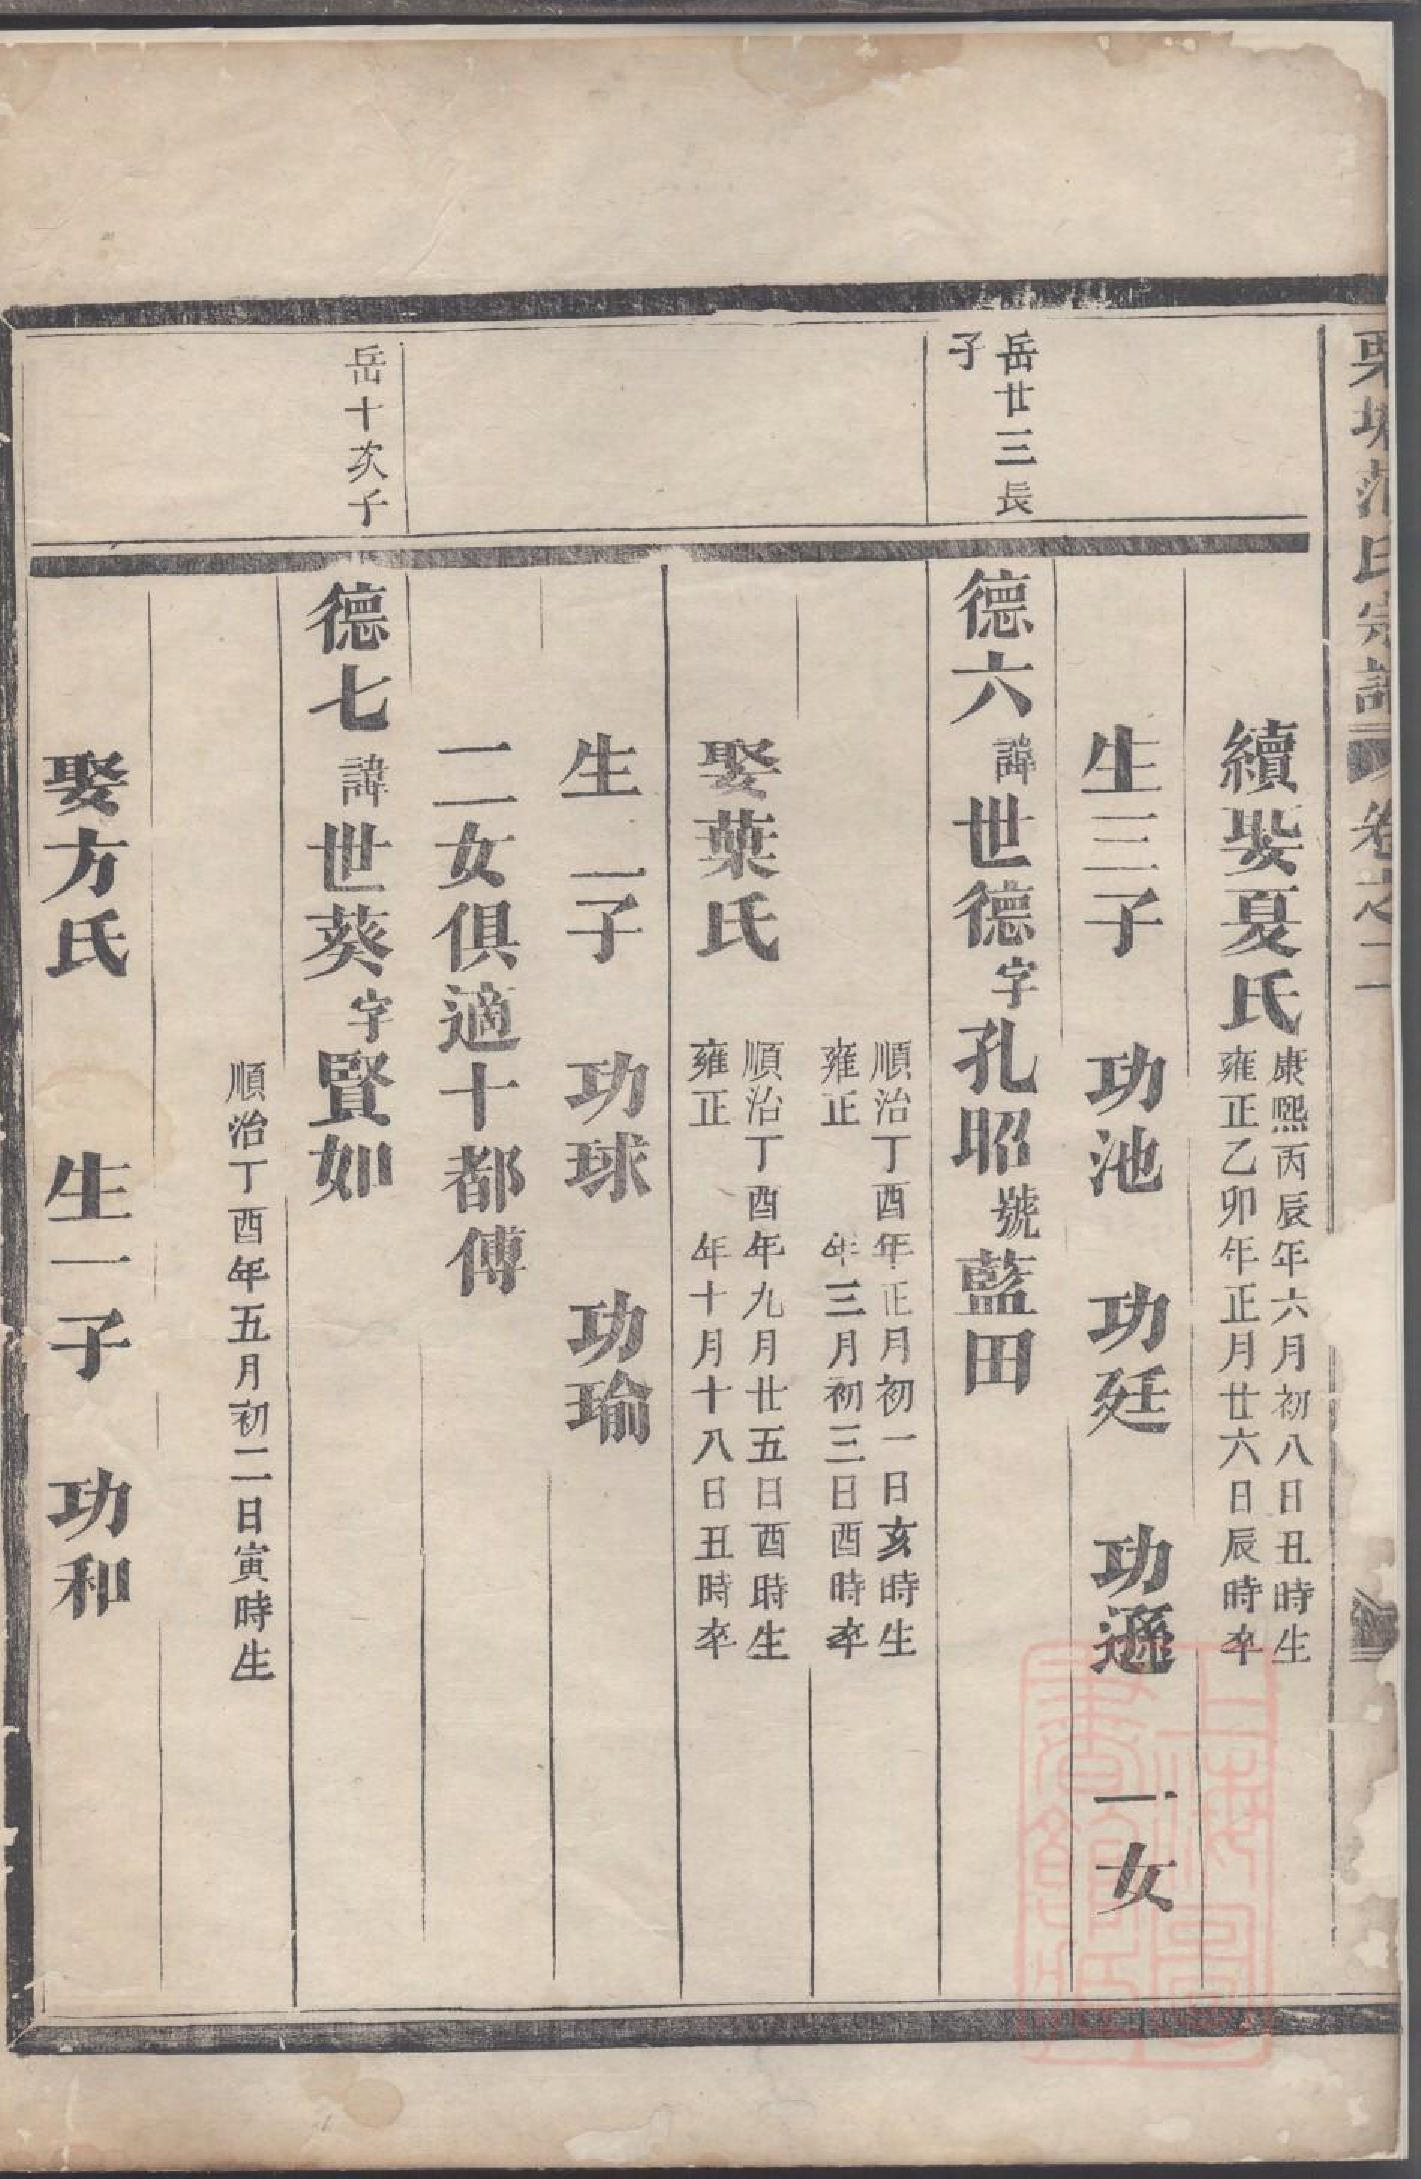 栗塘范氏宗譜 卷之二
續娶夏氏
康熙丙辰年六月初八日丑時生
雍正乙卯年正月廿六日辰時卒
生三子 功池 功廷 功遜 一女
岳廿三長
子
德六諱世德字孔昭號藍田
順治丁酉年正月初一日亥時生
雍正 年三月初三日酉時卒
娶葉氏
順治丁酉年九月廿五日酉時生
雍正 年十月十八日丑時卒
生二子 功球 功瑜
二女俱適十都傅
岳十次子
德七諱世葵字賢如
順治丁酉年五月初二日寅時生
娶方氏 生一子 功和
上海圖書館藏